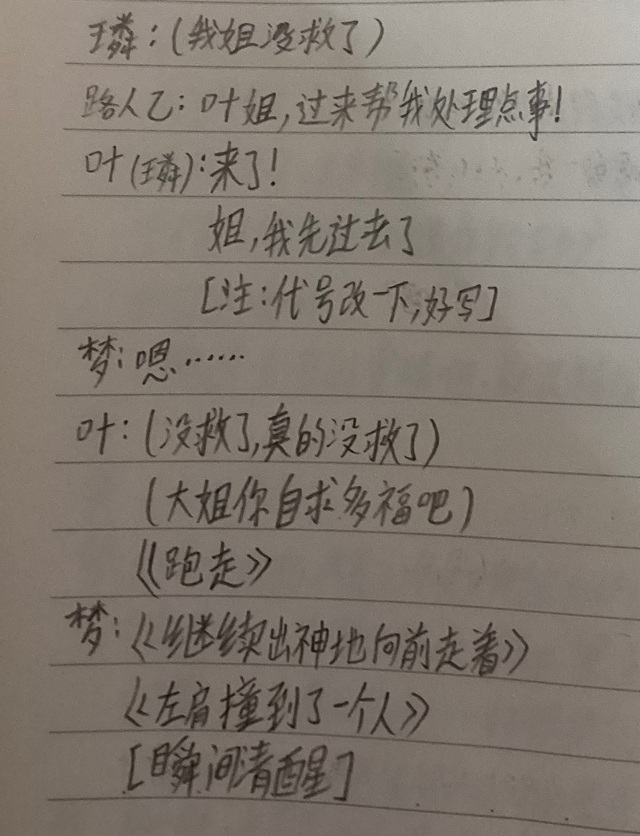 璘：(我姐没救了)
路人乙：叶姐，过来帮我处理点事！
叶(璘)：来了！
姐，我先过去了
[注：代号改一下，好写]
梦：嗯……
叶：(没救了，真的没救了)
(大姐你自求多福吧)
《跑走》
梦：《继续出神地向前走着》
《左肩撞到了一个人》
[瞬间清醒]